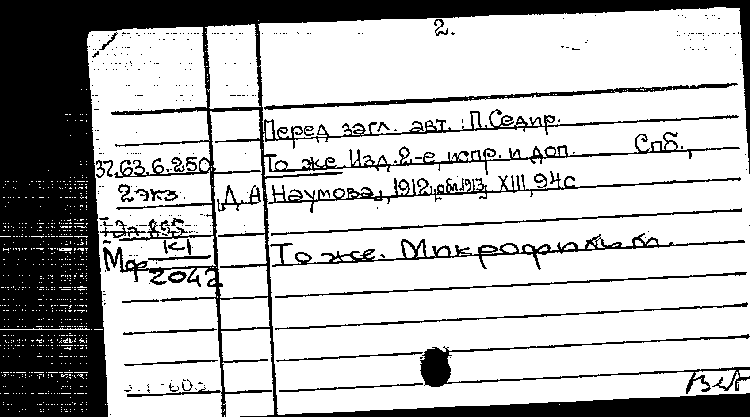 2.
Перед загл. авт.: П. Седир.
37.63.6.250 То же Изд. 2-е, испр. и доп. Спб.,
2 экз. Д. А. Наумова, 1912, обл. 1913. XIII, 94 с
Мф К1 То же. Микрофильм.
2042